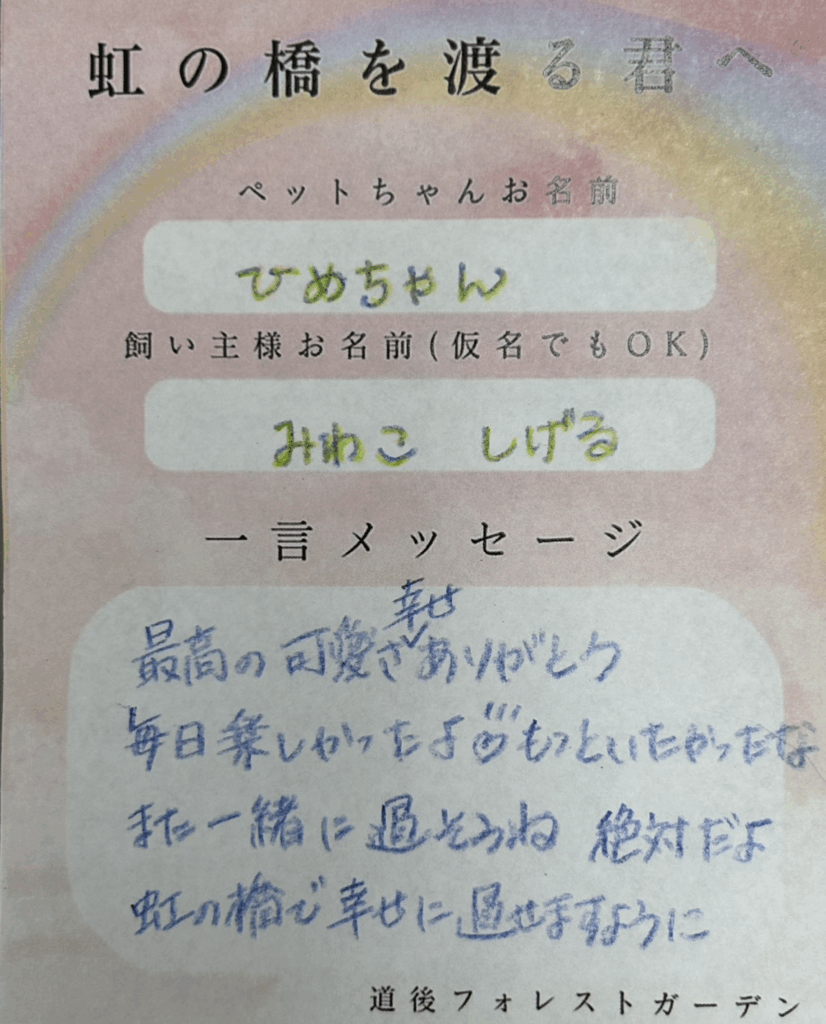 虹の橋を渡る君へ
ペットちゃんお名前
ひめちゃん
飼い主様お名前(仮名でもOK)
みわこ しげる
一言メッセージ
幸せ
最高の可愛さありがとう
毎日楽しかったよもっといたかったな
また一緒に過そうね 絶対だよ
虹の橋で幸せに過せますように
道後フォレストガーデン